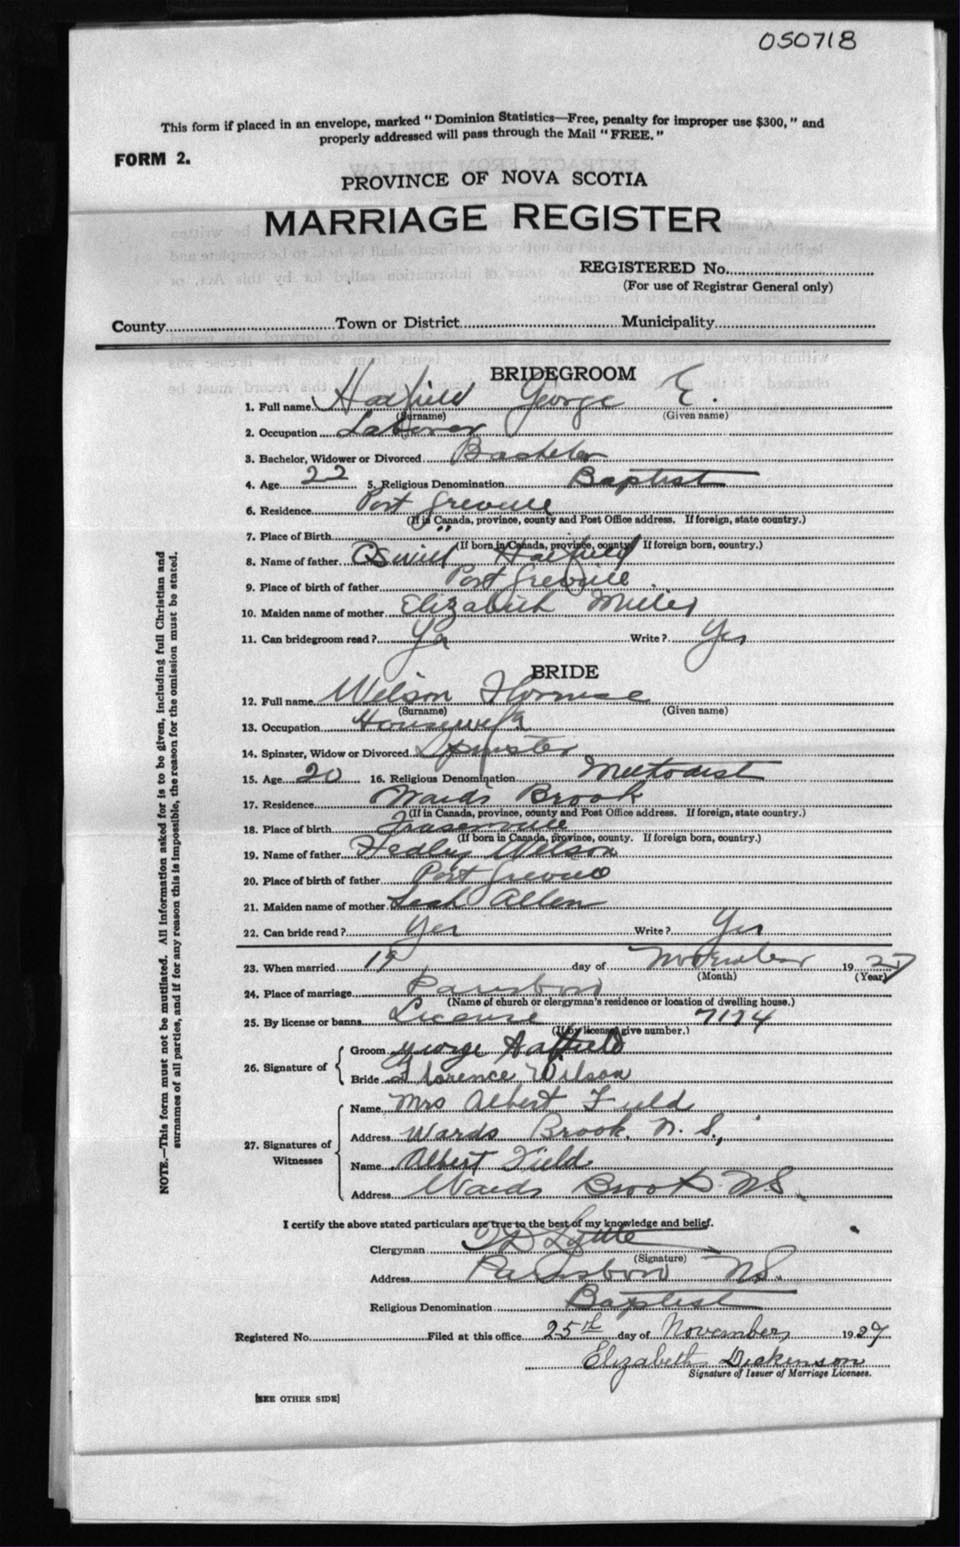 050718
This form if placed in an envelope, marked "Dominion Statistics—Free, penalty for improper use $300," and
properly addressed will pass through the Mail "FREE."
FORM 2.
PROVINCE OF NOVA SCOTIA
MARRIAGE REGISTER
REGISTERED No.
(For use of Registrar General only)
County Town or District Municipality
BRIDEGROOM
1. Full name Hatfield George E.
(Surname) (Given name)
2. Occupation Laborer
3. Bachelor, Widower or Divorced Bachelor
4. Age 22 5. Religious Denomination Baptist
6. Residence Port Greville
(If in Canada, province, county and Post Office address. If foreign, state country.)
7. Place of Birth " "
(If born in Canada, province, county If foreign born, country.)
8. Name of father Hatfield
9. Place of birth of father Port Greville
10. Maiden name of mother Elizabeth Miller
11. Can bridegroom read? Yes Write? Yes
BRIDE
12. Full name Wilson Florence
(Surname) (Given name)
13. Occupation Housewife
14. Spinster, Widow or Divorced Spinster
15. Age 20 16. Religious Denomination Methodist
17. Residence Wards Brook
(If in Canada, province, county and Post Office address. If foreign, state country.)
18. Place of birth Fraserville
(If born in Canada, province, county. If foreign born, country.)
19. Name of father Hedley Wilson
20. Place of birth of father Port Greville
21. Maiden name of mother Leah Allen
22. Can bride read? Yes Write? Yes
23. When married 19 day of November 1927
(Month) (Year)
24. Place of marriage Parrsboro
(Name of church or clergyman's residence or location of dwelling house.)
25. By license or banns License 7174
(If by license give number.)
26. Signature of
Groom George Hatfield
Bride Florence Wilson
27. Signatures of Witnesses
Name Mrs Albert Field
Address Wards Brook, N.S.,
Name Albert Field
Address Wards Brook N.S.
I certify the above stated particulars are true to the best of my knowledge and belief.
Clergyman
(Signature)
Address Parrsboro N.S.
Religious Denomination Baptist
Registered No. Filed at this office 25th day of November, 1927
Elizabeth Dickinson
Signature of Issuer of Marriage Licenses.
[SEE OTHER SIDE]
NOTE.—This form must not be mutilated. All information asked for is to be given, including full Christian and
surnames of all parties, and if for any reason this is impossible, the reason for the omission must be stated.